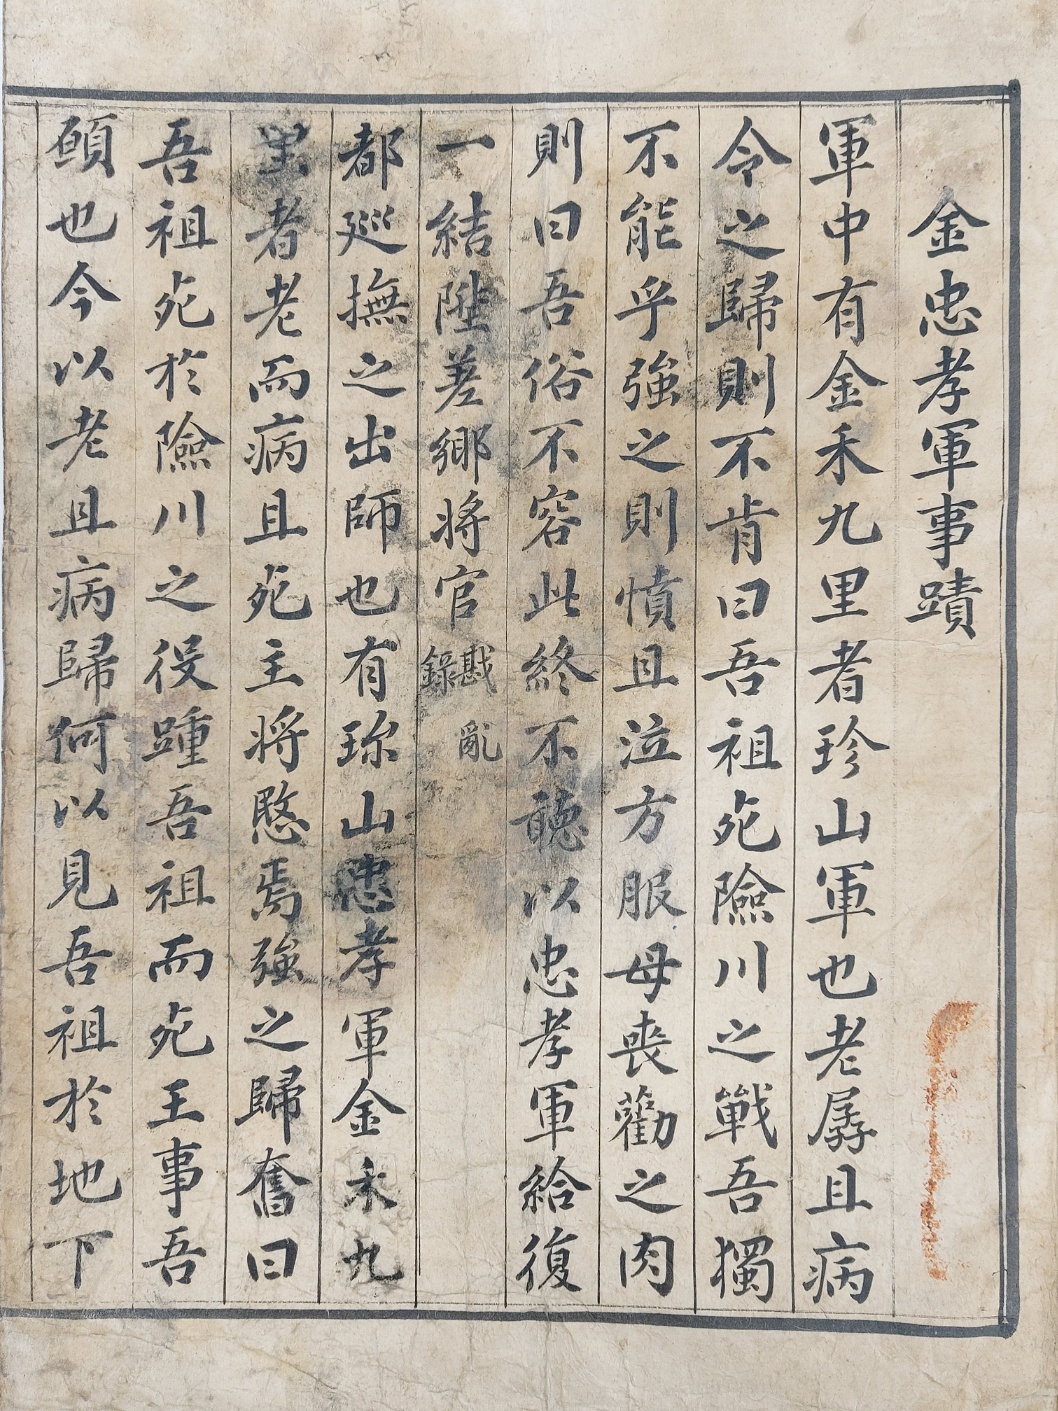 金忠孝軍事蹟
軍中有金禾九里者珍山軍也老孱且病
令之歸則不肯曰吾祖死險川之戰吾獨
不能乎強之則憤且泣方服母喪勸之肉
則曰吾俗不容此終不聽以忠孝軍給復
一結陞差鄉將官戡亂錄
都巡撫之出師也有珎山忠孝軍金禾九
里者老而病且死主將愍焉強之歸奮曰
吾祖死於險川之役踵吾祖而死王事吾
願也今以老且病歸何以見吾祖於地下